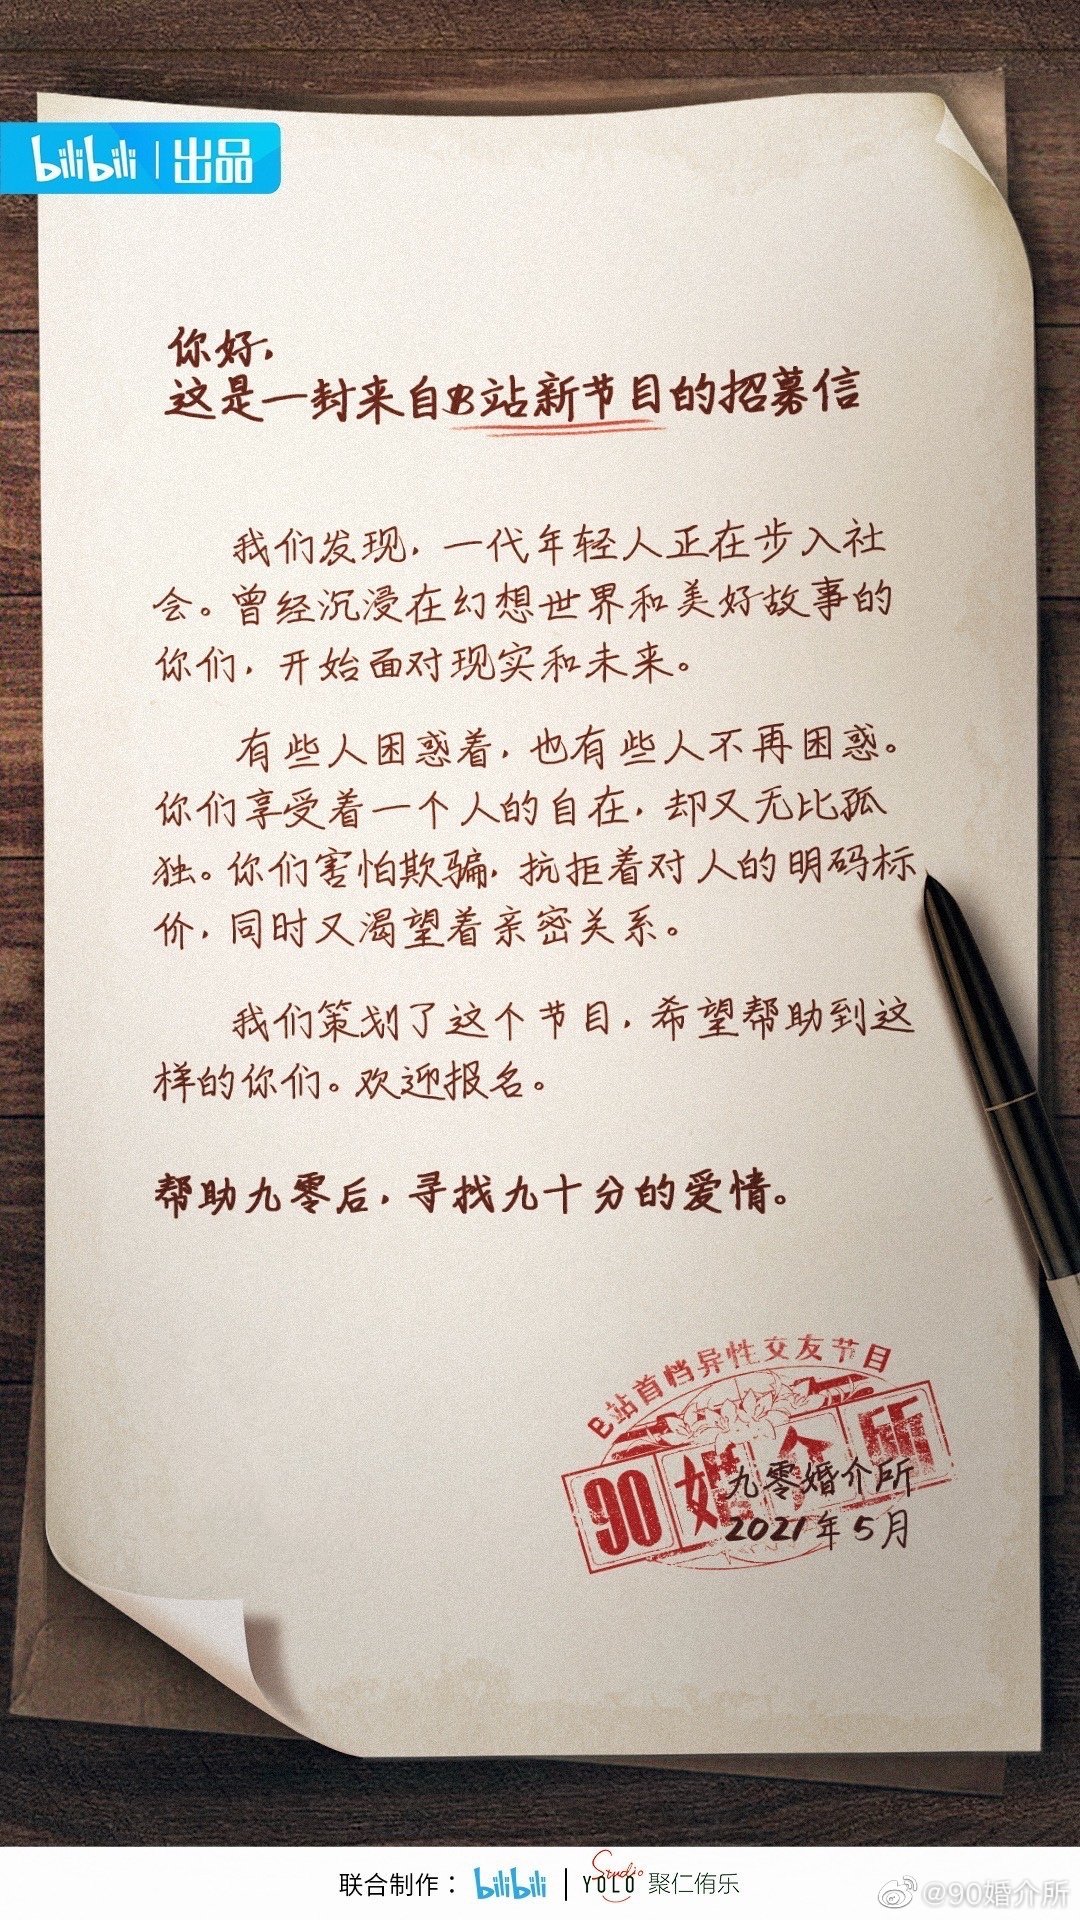 bilibili | 出品
你好，
这是一封来自B站新节目的招募信
我们发现，一代年轻人正在步入社
会。曾经沉浸在幻想世界和美好故事的
你们，开始面对现实和未来。
有些人困惑着，也有些人不再困惑。
你们享受着一个人的自在，却又无比孤
独。你们害怕欺骗，抗拒着对人的明码标
价，同时又渴望着亲密关系。
我们策划了这个节目，希望帮助到这
样的你们。欢迎报名。
帮助九零后，寻找九十分的爱情。
B站首档异性交友节目
90婚介所
九零婚介所
2021年5月
联合制作： bilibili | Studio YOLO 聚仁侑乐
@90婚介所